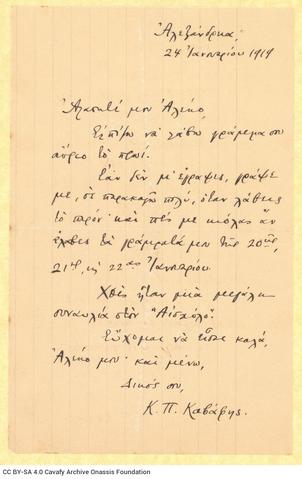 Ἀλεξάνδρεια,
24 Ἰανουαρίου 1919
Ἀγαπητέ μου Ἀλέκο,
Ἐλπίζω νὰ λάβω γράμμα σου
αὔριο τὸ πρωΐ.
Ἐὰν δὲν μ' ἔγραψες, γράψε
με, σὲ παρακαλῶ πολύ, ὅταν λάβεις
τὸ παρὸν καὶ πές με κιόλας ἂν
ἔλαβες τὰ γράμματά μου τῆς 20ῆς,
21ης, κ 22ας Ἰανουαρίου.
Χθὲς ἦταν μιὰ μεγάλη
συναυλία στὸν "Αἰσχύλο".
Εὔχομαι νὰ εἶσαι καλά,
Ἀλέκο μου· καὶ μένω,
Δικός σου,
Κ. Π. Καβάφης.
CC BY-SA 4.0 Cavafy Archive Onassis Foundation